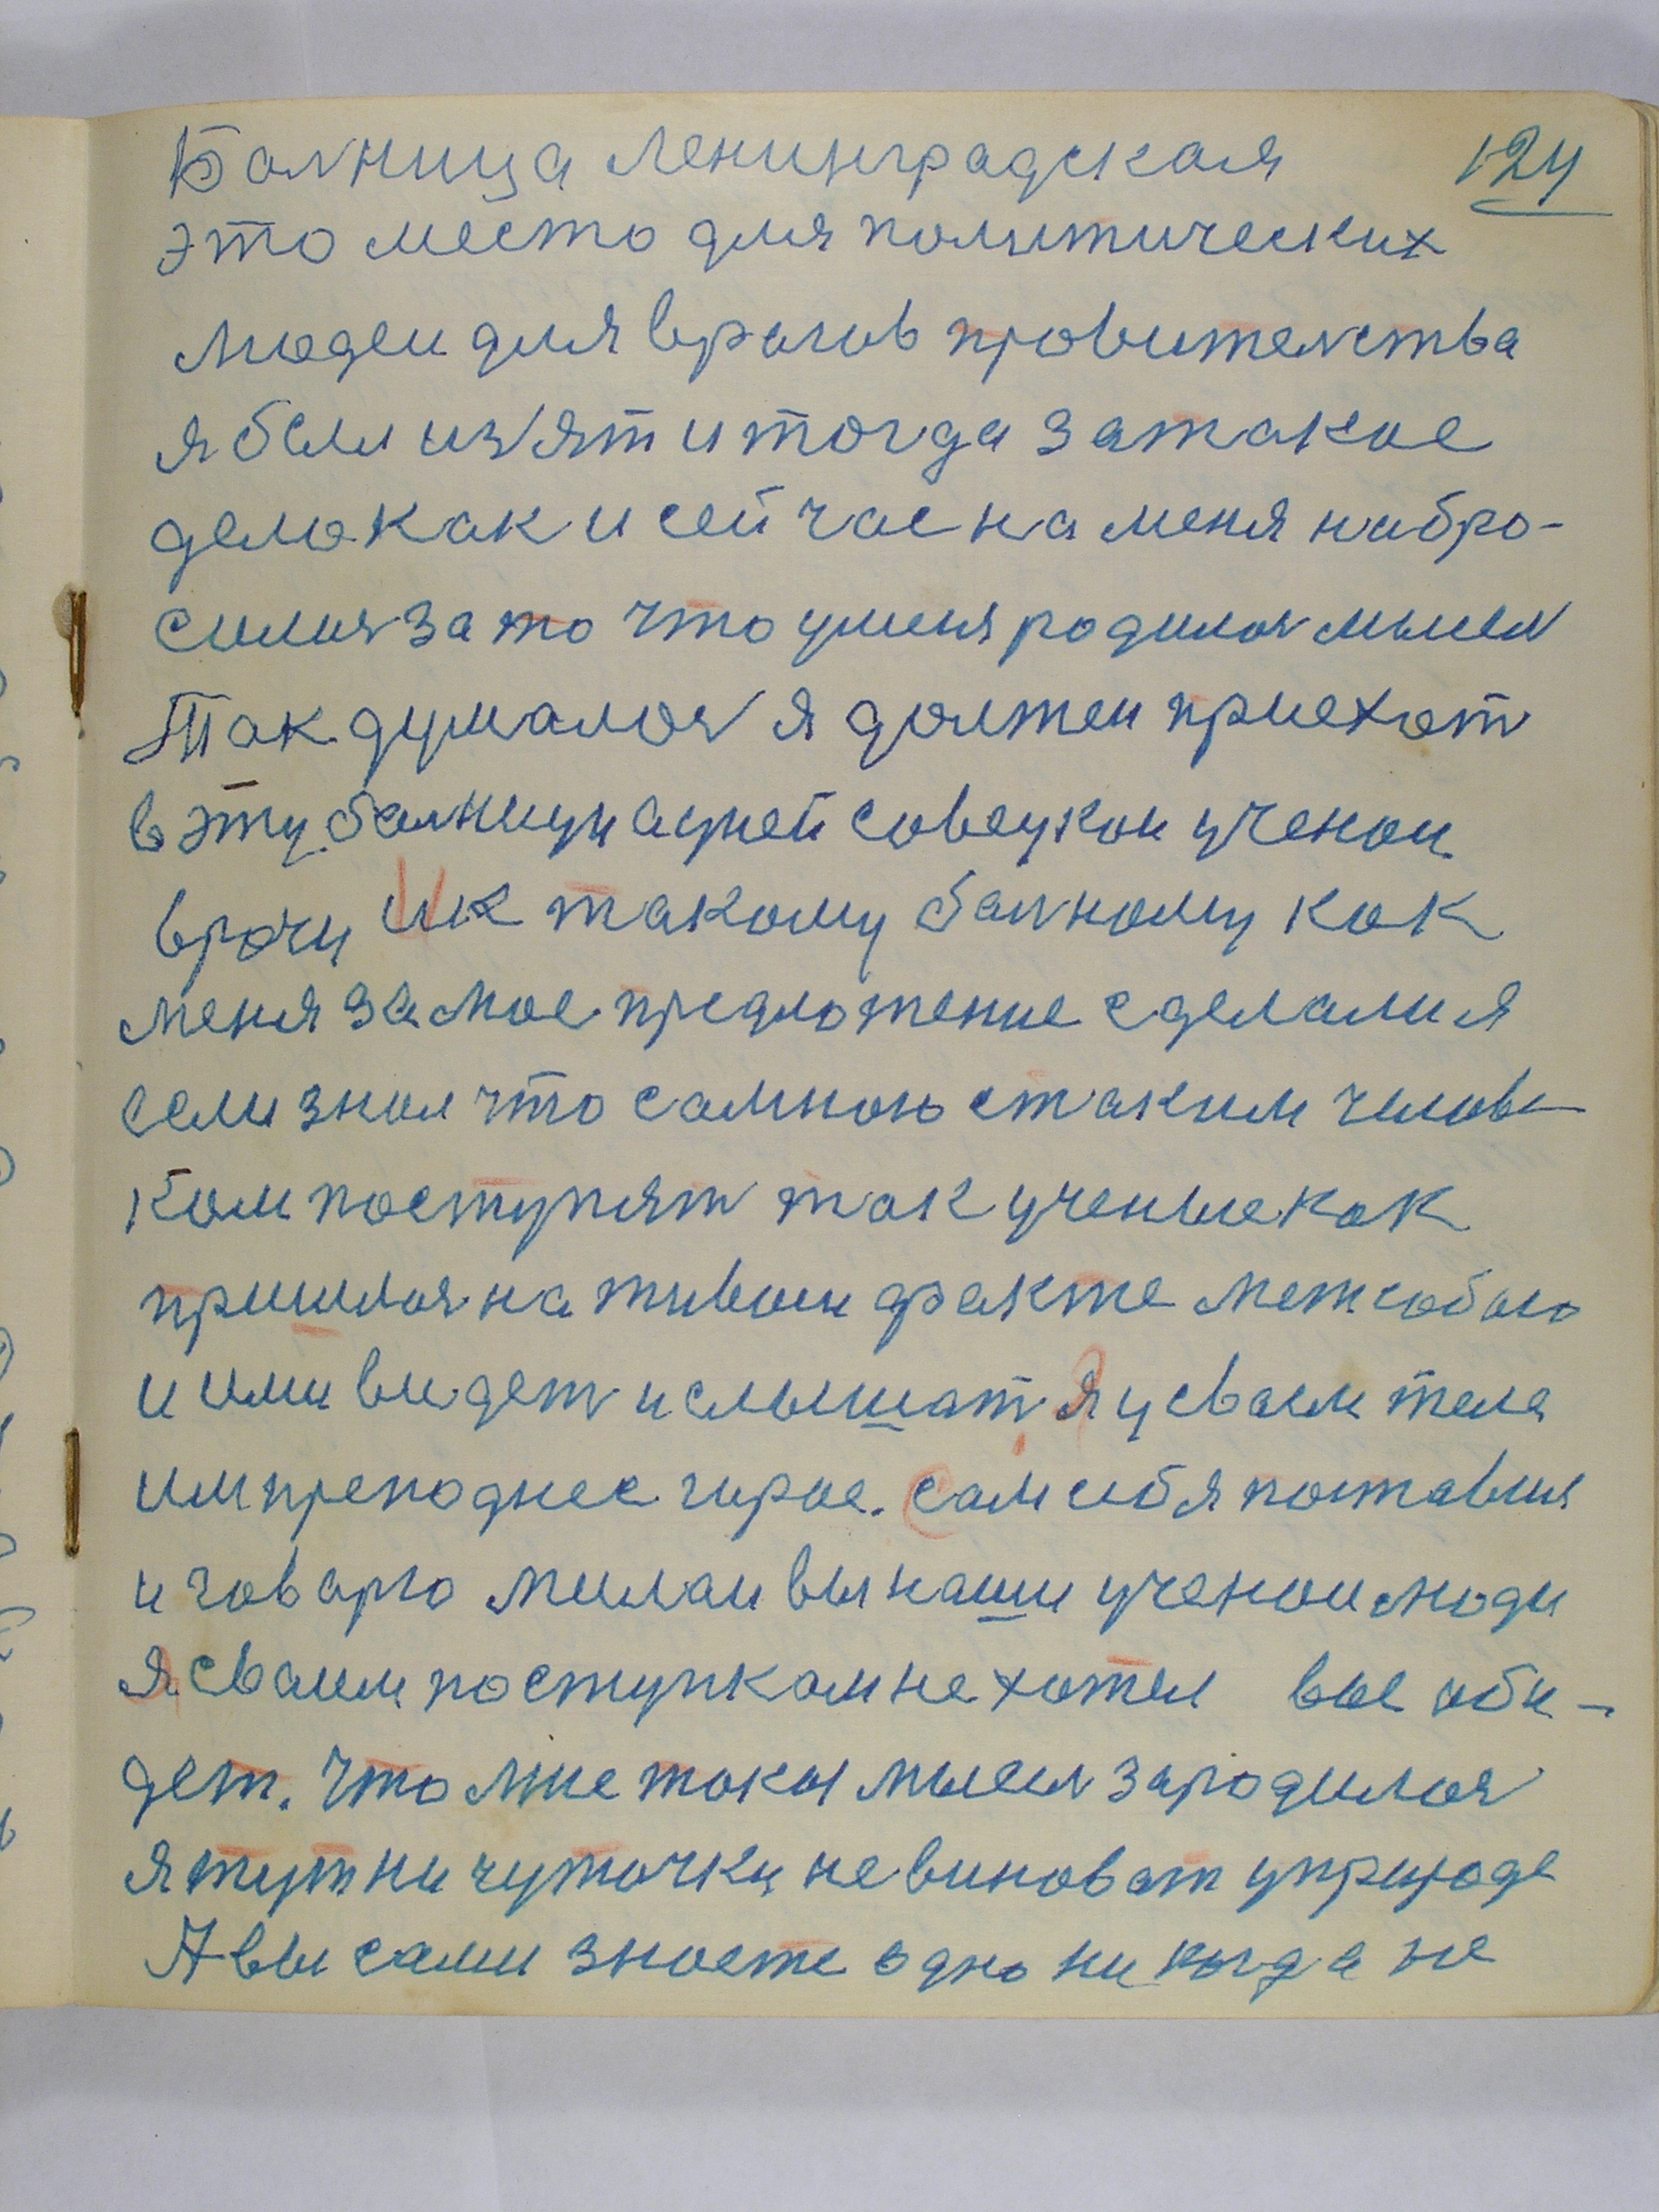 Балница Ленинградская 124
это место для политических
людеи для врагов провителства
я был изят и тогда за такое
дело как и сейчас на меня набро-
силис за то что у меня родилас мысл
Так думалос я должен приехат
в эту балницу а у ней совецкои ученои
врачи и к такому балному как
меня за мое предложение сделали я
если знал что са мною с таким челове
ком поступят так ученые как
пришлос на живом факте меж собою
и ими видет и слышат. Я у своем теле
им преподнес горое. сам себя поставил
и говарю милаи вы наши ученои люди
я сваим поступкам не хотел вас оби-
дет. Что мне такы мысл зародилас
я тут ни чуточки не виноват у природе
А вы сами знаете одно никогда не